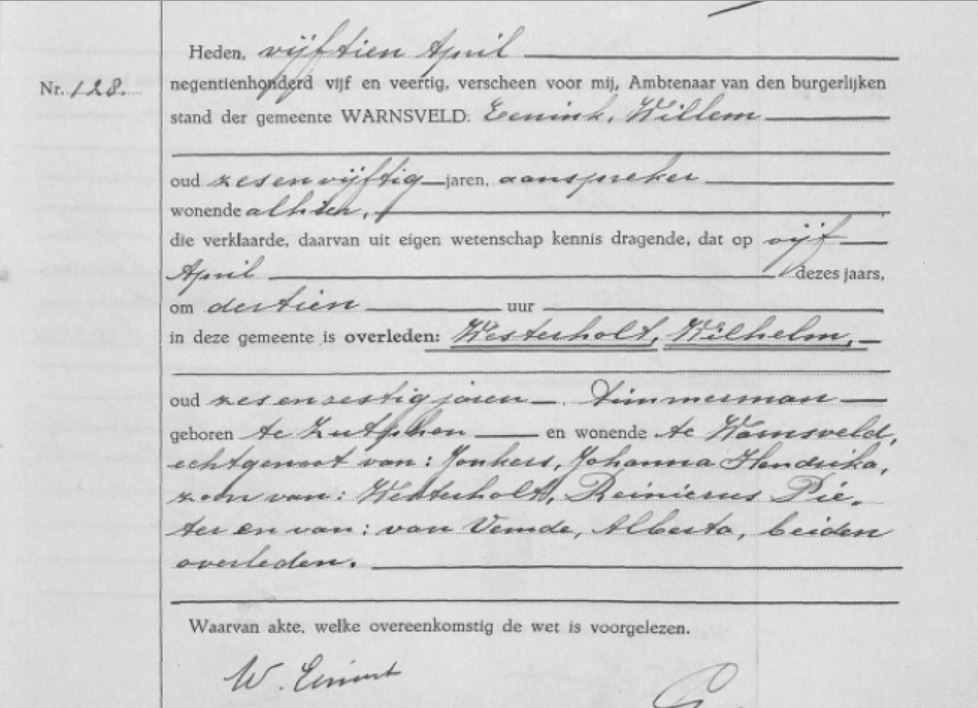 Heden, vijftien April
Nr. 128. negentienhonderd vijf en veertig, verscheen voor mij, Ambtenaar van den burgerlijken
stand der gemeente WARNSVELD: Eenink, Willem
oud zesenvijftig jaren, aanspreker
wonende alhier,
die verklaarde, daarvan uit eigen wetenschap kennis dragende, dat op vijf
April dezes jaars,
om dertien uur
in deze gemeente is overleden: Westerholt, Wilhelm,
oud zesenzestig jaren timmerman
geboren te Zutphen en wonende te Warnsveld,
echtgenoot van: Jonkers, Johanna Hendrika,
zoon van: Westerholt, Reinierus Pie-
ter en van: van Vemde, Alberta, beiden
overleden.
Waarvan akte, welke overeenkomstig de wet is voorgelezen.
W. Eenink